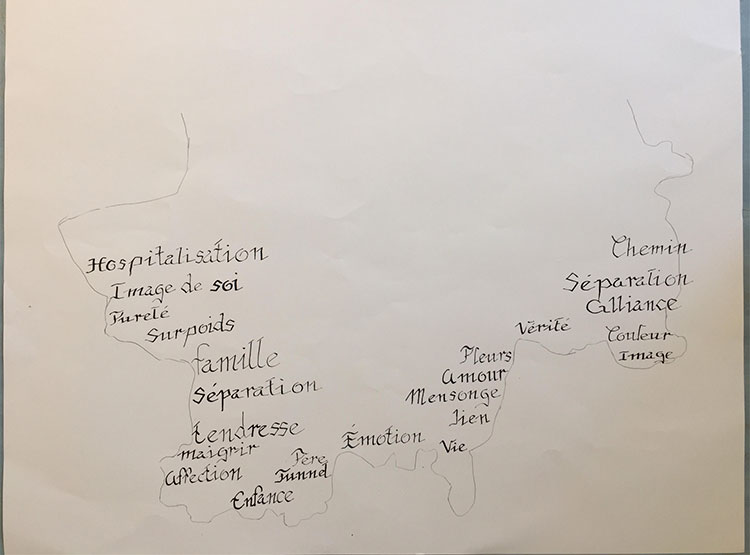 Hospitalisation
Image de soi
Pureté
Surpoids
famille
Séparation
tendresse
maigrir
Affection
Père
Tunnel
Enfance
Émotion
Pleurs
Amour
Mensonge
lien
Vie
Vérité
Chemin
Séparation
Alliance
Couleur
Image